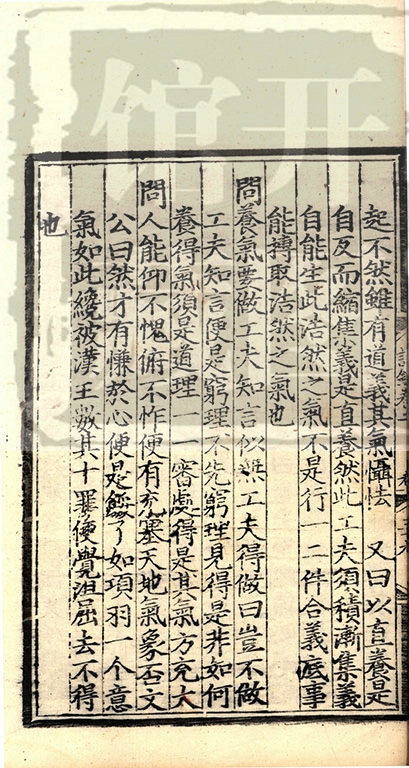 起不然雖有道義其氣懾怯 又曰以直養是
自反而縮集義是直養然此工夫須積漸集義
自能生此浩然之氣不是行一二件合義底事
能摶取浩然之氣也
問養氣要做工夫知言似無工夫得做曰豈不做
工夫知言便是窮理不先窮理見得是非如何
養得氣須是道理一一審處得是其氣方充大
問人能仰不愧俯不怍便有充塞天地氣象否文
公曰然才有慊於心便是餒了如項羽一个意
氣如此纔被漢王數其十罪便覺沮屈去不得
也
開
館